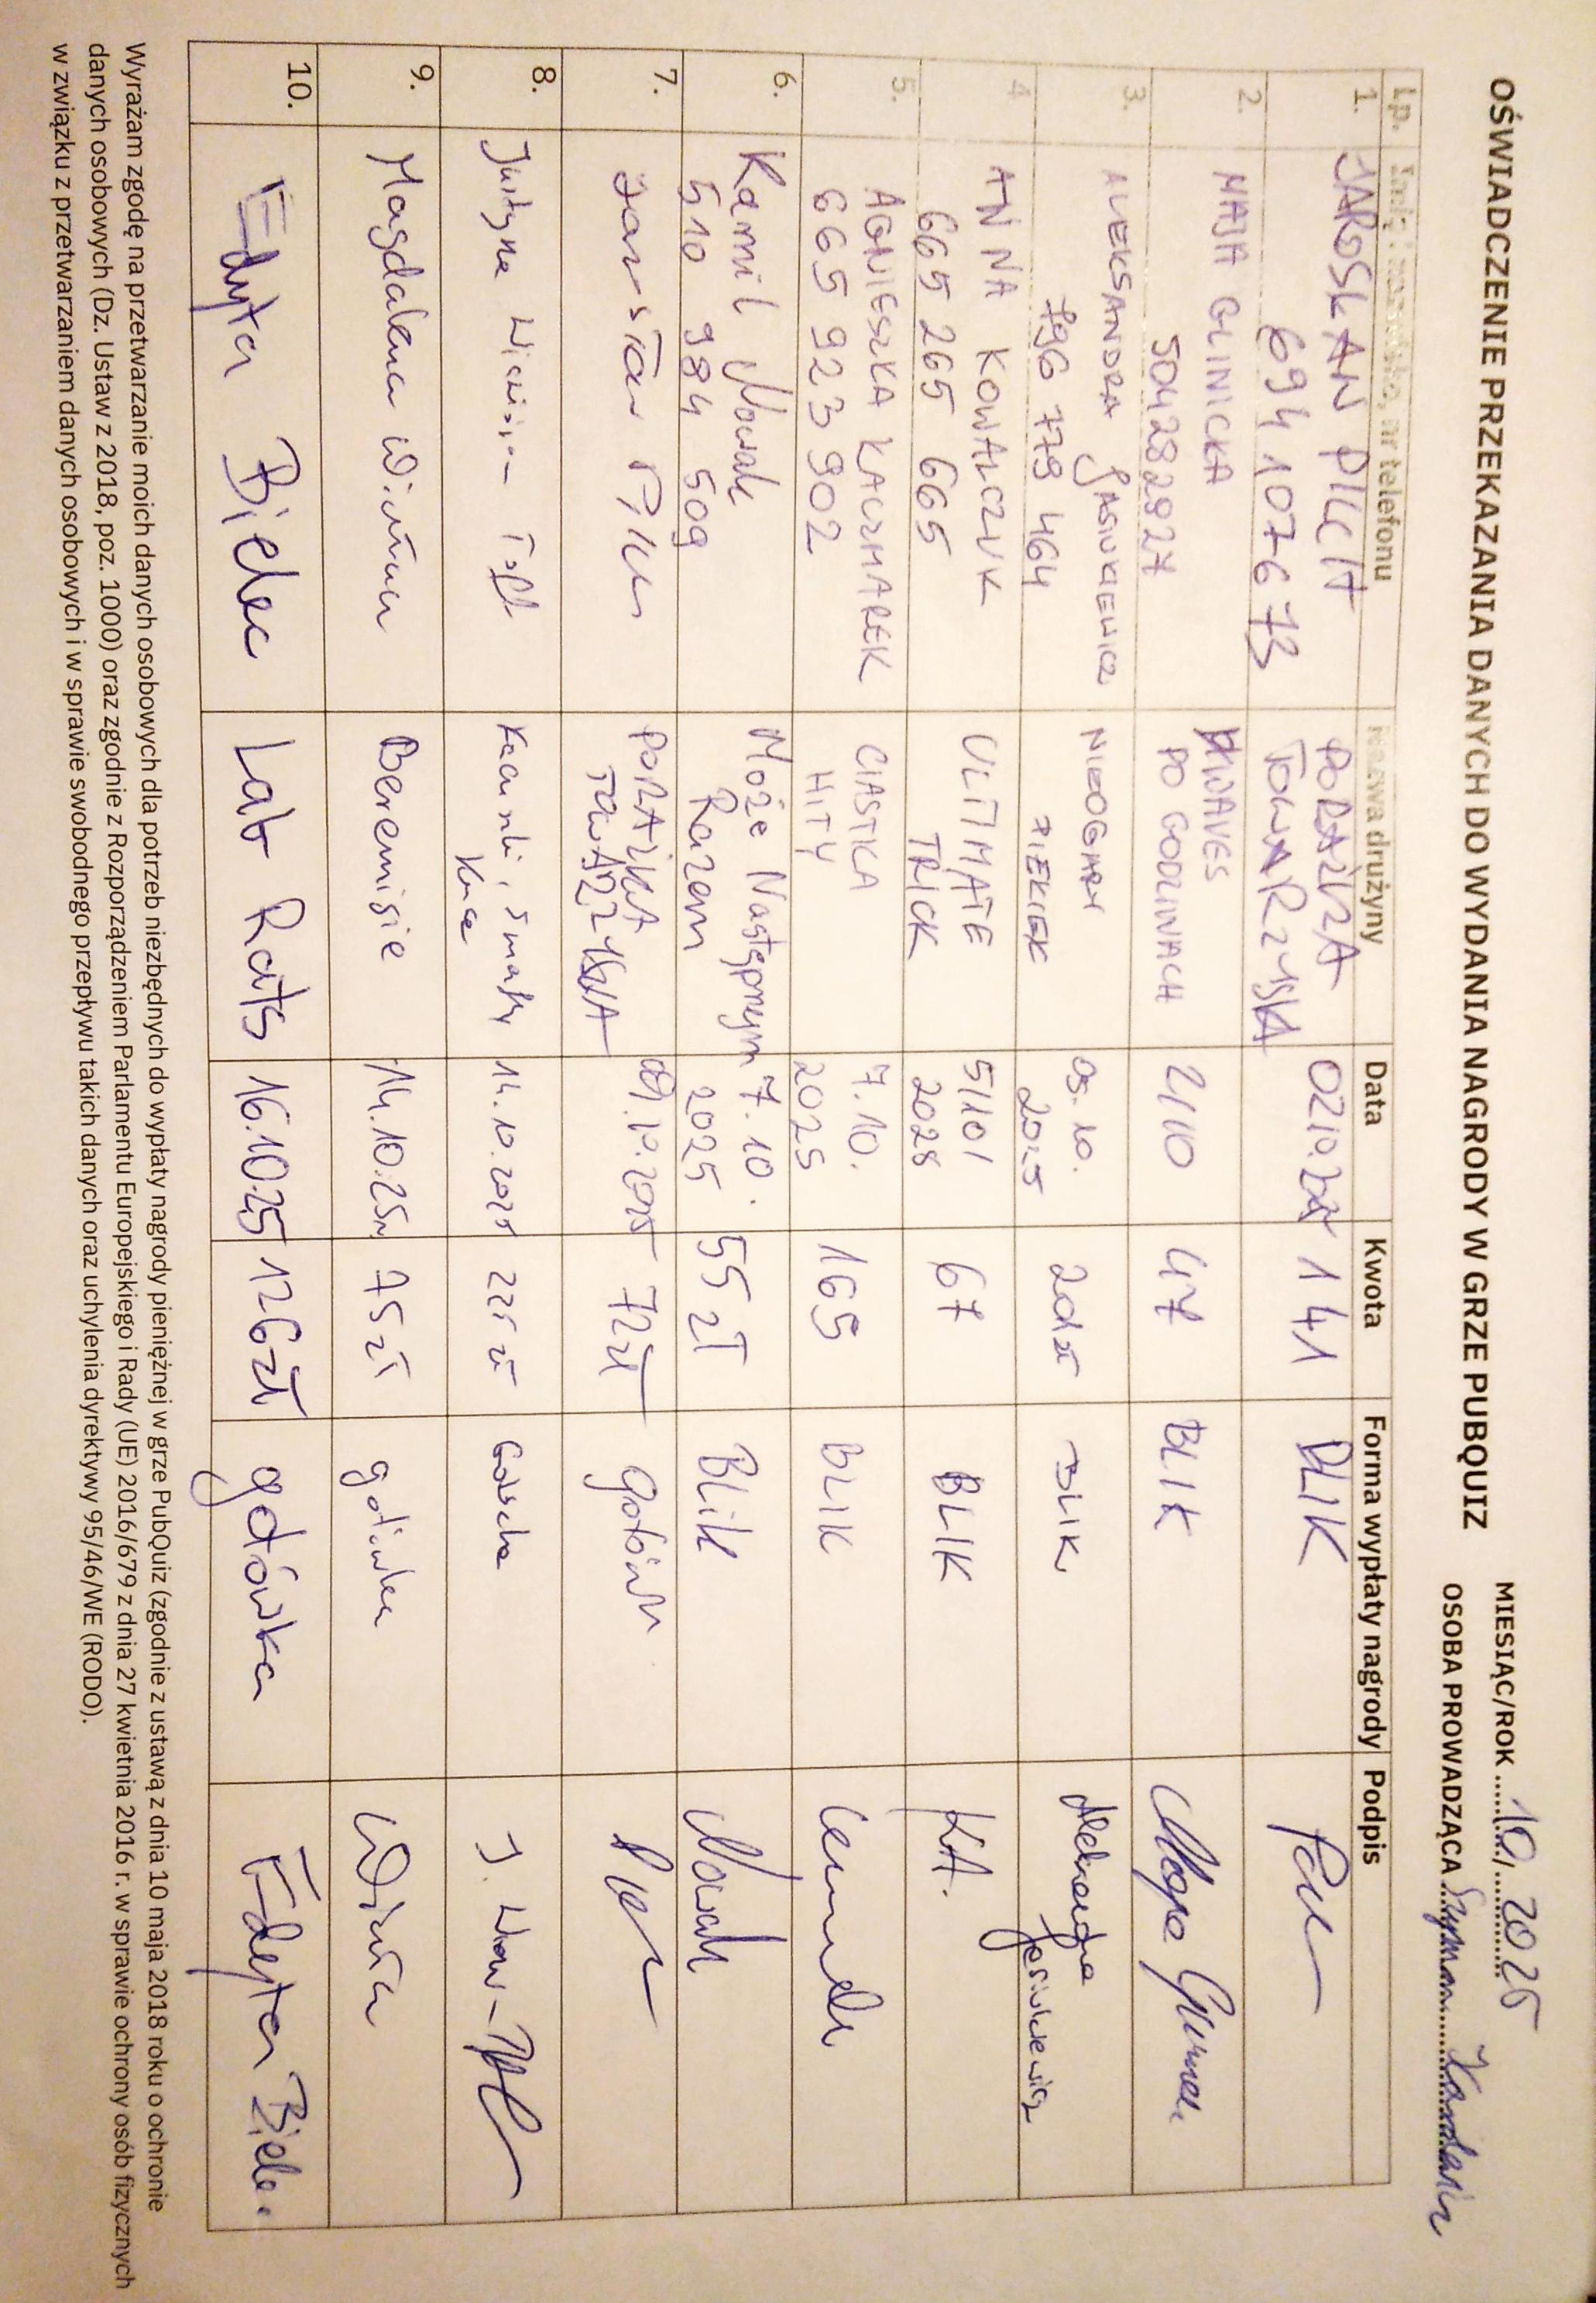 OŚWIADCZENIE PRZEKAZANIA DANYCH DO WYDANIA NAGRODY W GRZE PUBQUIZ
MIESIĄC/ROK 10/2025
OSOBA PROWADZĄCA Szymon
Lp. Imię i nazwisko, nr telefonu Nazwa drużyny Data Kwota Forma wypłaty nagrody Podpis
1. JAROSŁAW
694 107 673
PORAŻKA
TOWARZYSKA
02.10. 141 BLIK
2. MAJA GLINICKA
504282927
PO GODZINACH
2/10 47 BLIK
3. ALEKSANDRA JASIUKIEWICZ
796 779 464
NIEOGARY
05.10.
2025
BLIK
Aleksandra Jasiukiewicz
4. ANNA KOWALCZYK
665 265 665
ULTIMATE
TRICK
5/10/
2025
67 BLIK K.A.
5. AGNIESZKA KACZMAREK
665 923 902
CIASTKA
HITY
7.10.
2025
169 BLIK
6. Kamil Nowak
510 984 509
Może Następnym
Razem
7.10.
2025
55 zł Blik Nowak
7. Jarosław
PORAŻKA
TOWARZYSKA
09.10.2025 72 zł Gotówka
8. Justyna
14.10.2025 225 zł
9. Magdalena
Beremisie 14.10.25r. 75 zł gotówka
10. Edyta Bielec Lab Rats 16.10.25 126 zł gotówka Edyta Bielec
Wyrażam zgodę na przetwarzanie moich danych osobowych dla potrzeb niezbędnych do wypłaty nagrody pieniężnej w grze PubQuiz (zgodnie z ustawą z dnia 10 maja 2018 roku o ochronie
danych osobowych (Dz. Ustaw z 2018, poz. 1000) oraz zgodnie z Rozporządzeniem Parlamentu Europejskiego i Rady (UE) 2016/679 z dnia 27 kwietnia 2016 r. w sprawie ochrony osób fizycznych
w związku z przetwarzaniem danych osobowych i w sprawie swobodnego przepływu takich danych oraz uchylenia dyrektywy 95/46/WE (RODO).